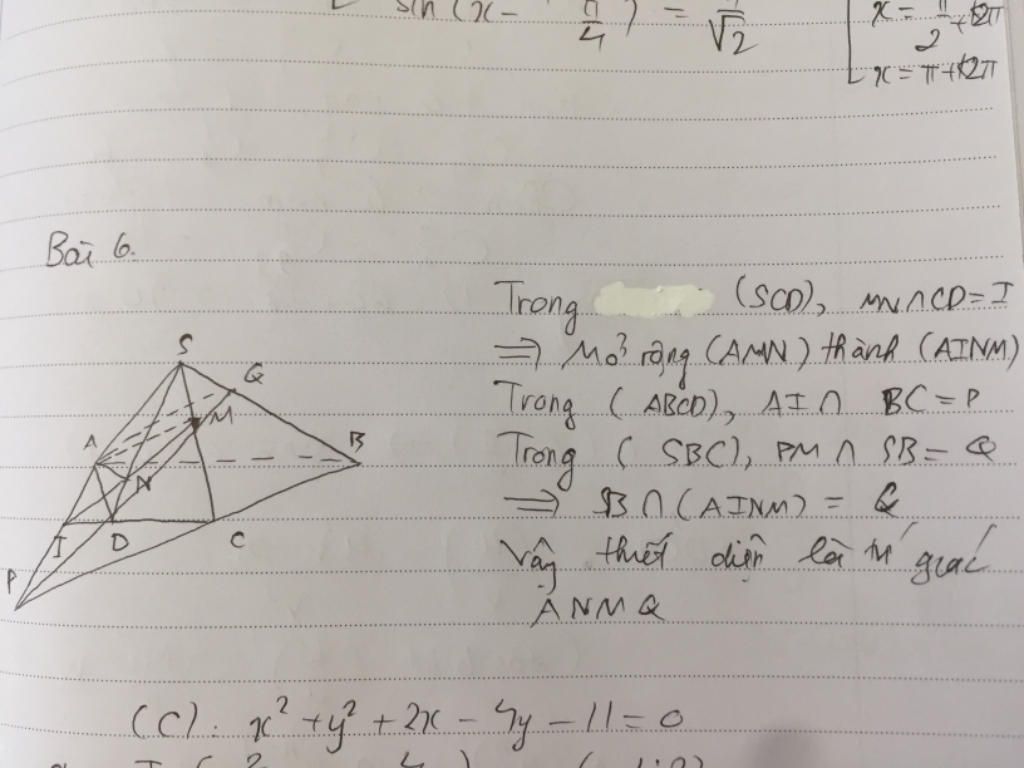 sin(x - π/4) = 1/√2
x = π/2 + k2π
x = π + k2π
Bài 6.
Trong (SCD), MN ∩ CD = I
⇒ Mở rộng (AMN) thành (AINM)
Trong (ABCD), AI ∩ BC = P
Trong (SBC), PM ∩ SB = Q
⇒ SB ∩ (AINM) = Q
Vậy thiết diện là tứ giác
ANMQ
S
Q
M
A
B
N
I D C
P
(C): x² + y² + 2x - 4y - 11 = 0